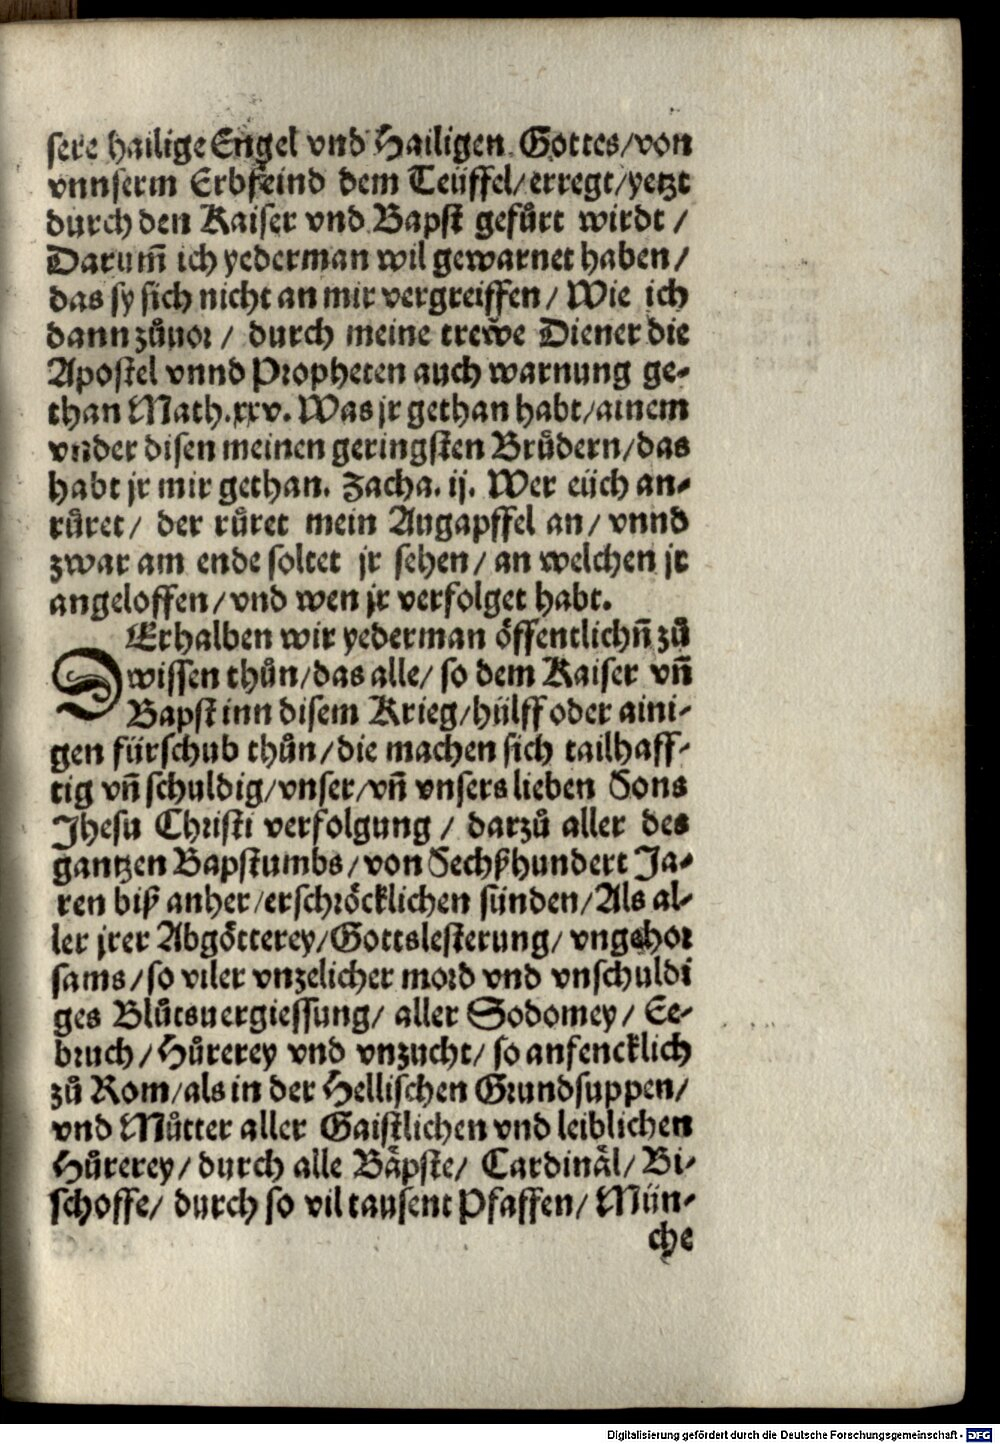 sere hailige Engel vnd Hailigen Gottes/von
vnnserm Erbfeind dem Teüffel/erregt/yetzt
durch den Kaiser vnd Bapst gefůrt wirdt /
Darum̃ ich yederman wil gewarnet haben/
das sy sich nicht an mir vergreiffen/ Wie ich
dann zůuor / durch meine trewe Diener die
Apostel vnnd Propheten auch warnung ge-
than Math.xxv. Was jr gethan habt/ainem
vnder disen meinen geringsten Brůdern/das
habt jr mir gethan. Zacha. ij. Wer eüch an-
růret/ der růret mein Augapffel an/ vnnd
zwar am ende soltet jr sehen/ an welchen jr
angeloffen/vnd wen jr verfolget habt.
DErhalben wir yederman öffentlichñ zů
wissen thůn/das alle/ so dem Kaiser vñ
Bapst inn disem Krieg/hülff oder aini-
gen fürschub thůn/die machen sich tailhaff-
tig vñ schuldig/vnser/vñ vnsers lieben Sons
Jhesu Christi verfolgung / darzů aller des
gantzen Bapstumbs/von Sechßhundert Ja-
ren biß anher/erschröcklichen sünden/Als al-
ler jrer Abgötterey/Gottslesterung/ vngehor
sams/so viler vnzelicher mord vnd vnschuldi
ges Blůtsuergiessung/ aller Sodomey/ Ee-
bruch/Hůrerey vnd vnzucht/ so anfencklich
zů Rom/als in der Hellischen Grundsuppen/
vnd Můtter aller Gaistlichen vnd leiblichen
Hůrerey/durch alle Bäpste/ Cardinäl/ Bi-
schoffe/ durch so vil tausent Pfaffen/ Mün-
che
Digitalisierung gefördert durch die Deutsche Forschungsgemeinschaft - DFG